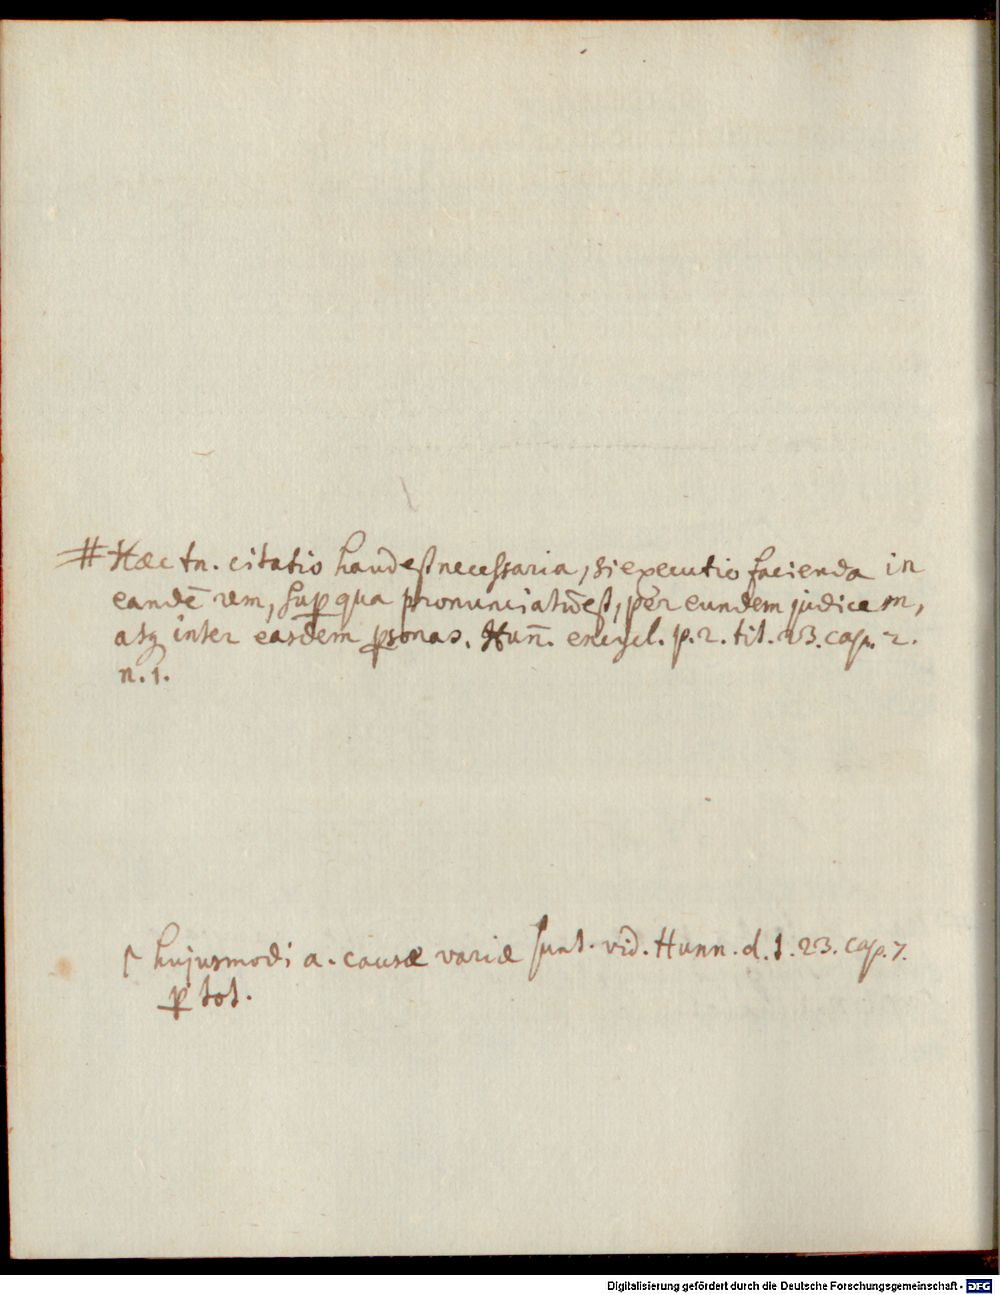 # Hæc tn. citatio haud est necessaria, si executio facienda in
eandē rem, sup qua pronunciatū est, per eundem judicem,
atq inter easdem psonas. Hun̄. encycl. p. 2. tit. 23. cap. 2.
n. 1.
┌ hujusmodi a. causæ variæ sunt. vid. Hunn. d. t. 23. cap. 7.
p tot.
Digitalisierung gefördert durch die Deutsche Forschungsgemeinschaft - DFG